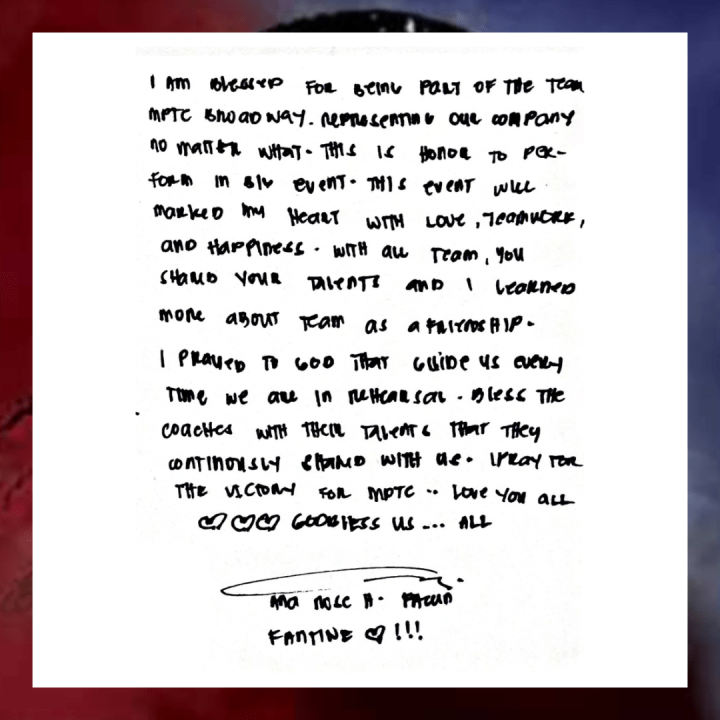 I AM BLESSED FOR BEING PART OF THE TEAM
MPTC BROADWAY. REPRESENTING OUR COMPANY
NO MATTER WHAT. THIS IS HONOR TO PER-
FORM IN BIG EVENT. THIS EVENT WILL
MARKED MY HEART WITH LOVE, TEAMWORK,
AND HAPPINESS. WITH ALL TEAM, YOU
SHARED YOUR TALENTS AND I LEARNED
MORE ABOUT TEAM AS A FRIENDSHIP.
I PRAYED TO GOD THAT GUIDE US EVERY
TIME WE ARE IN REHEARSAL. BLESS THE
COACHES WITH THEIR TALENTS THAT THEY
CONTINOUSLY SHARED WITH US. I PRAY FOR
THE VICTORY FOR MPTC .. LOVE YOU ALL
♡♡♡ GODBLESS US ... ALL
ROSE A.
FANTINE ♡!!!